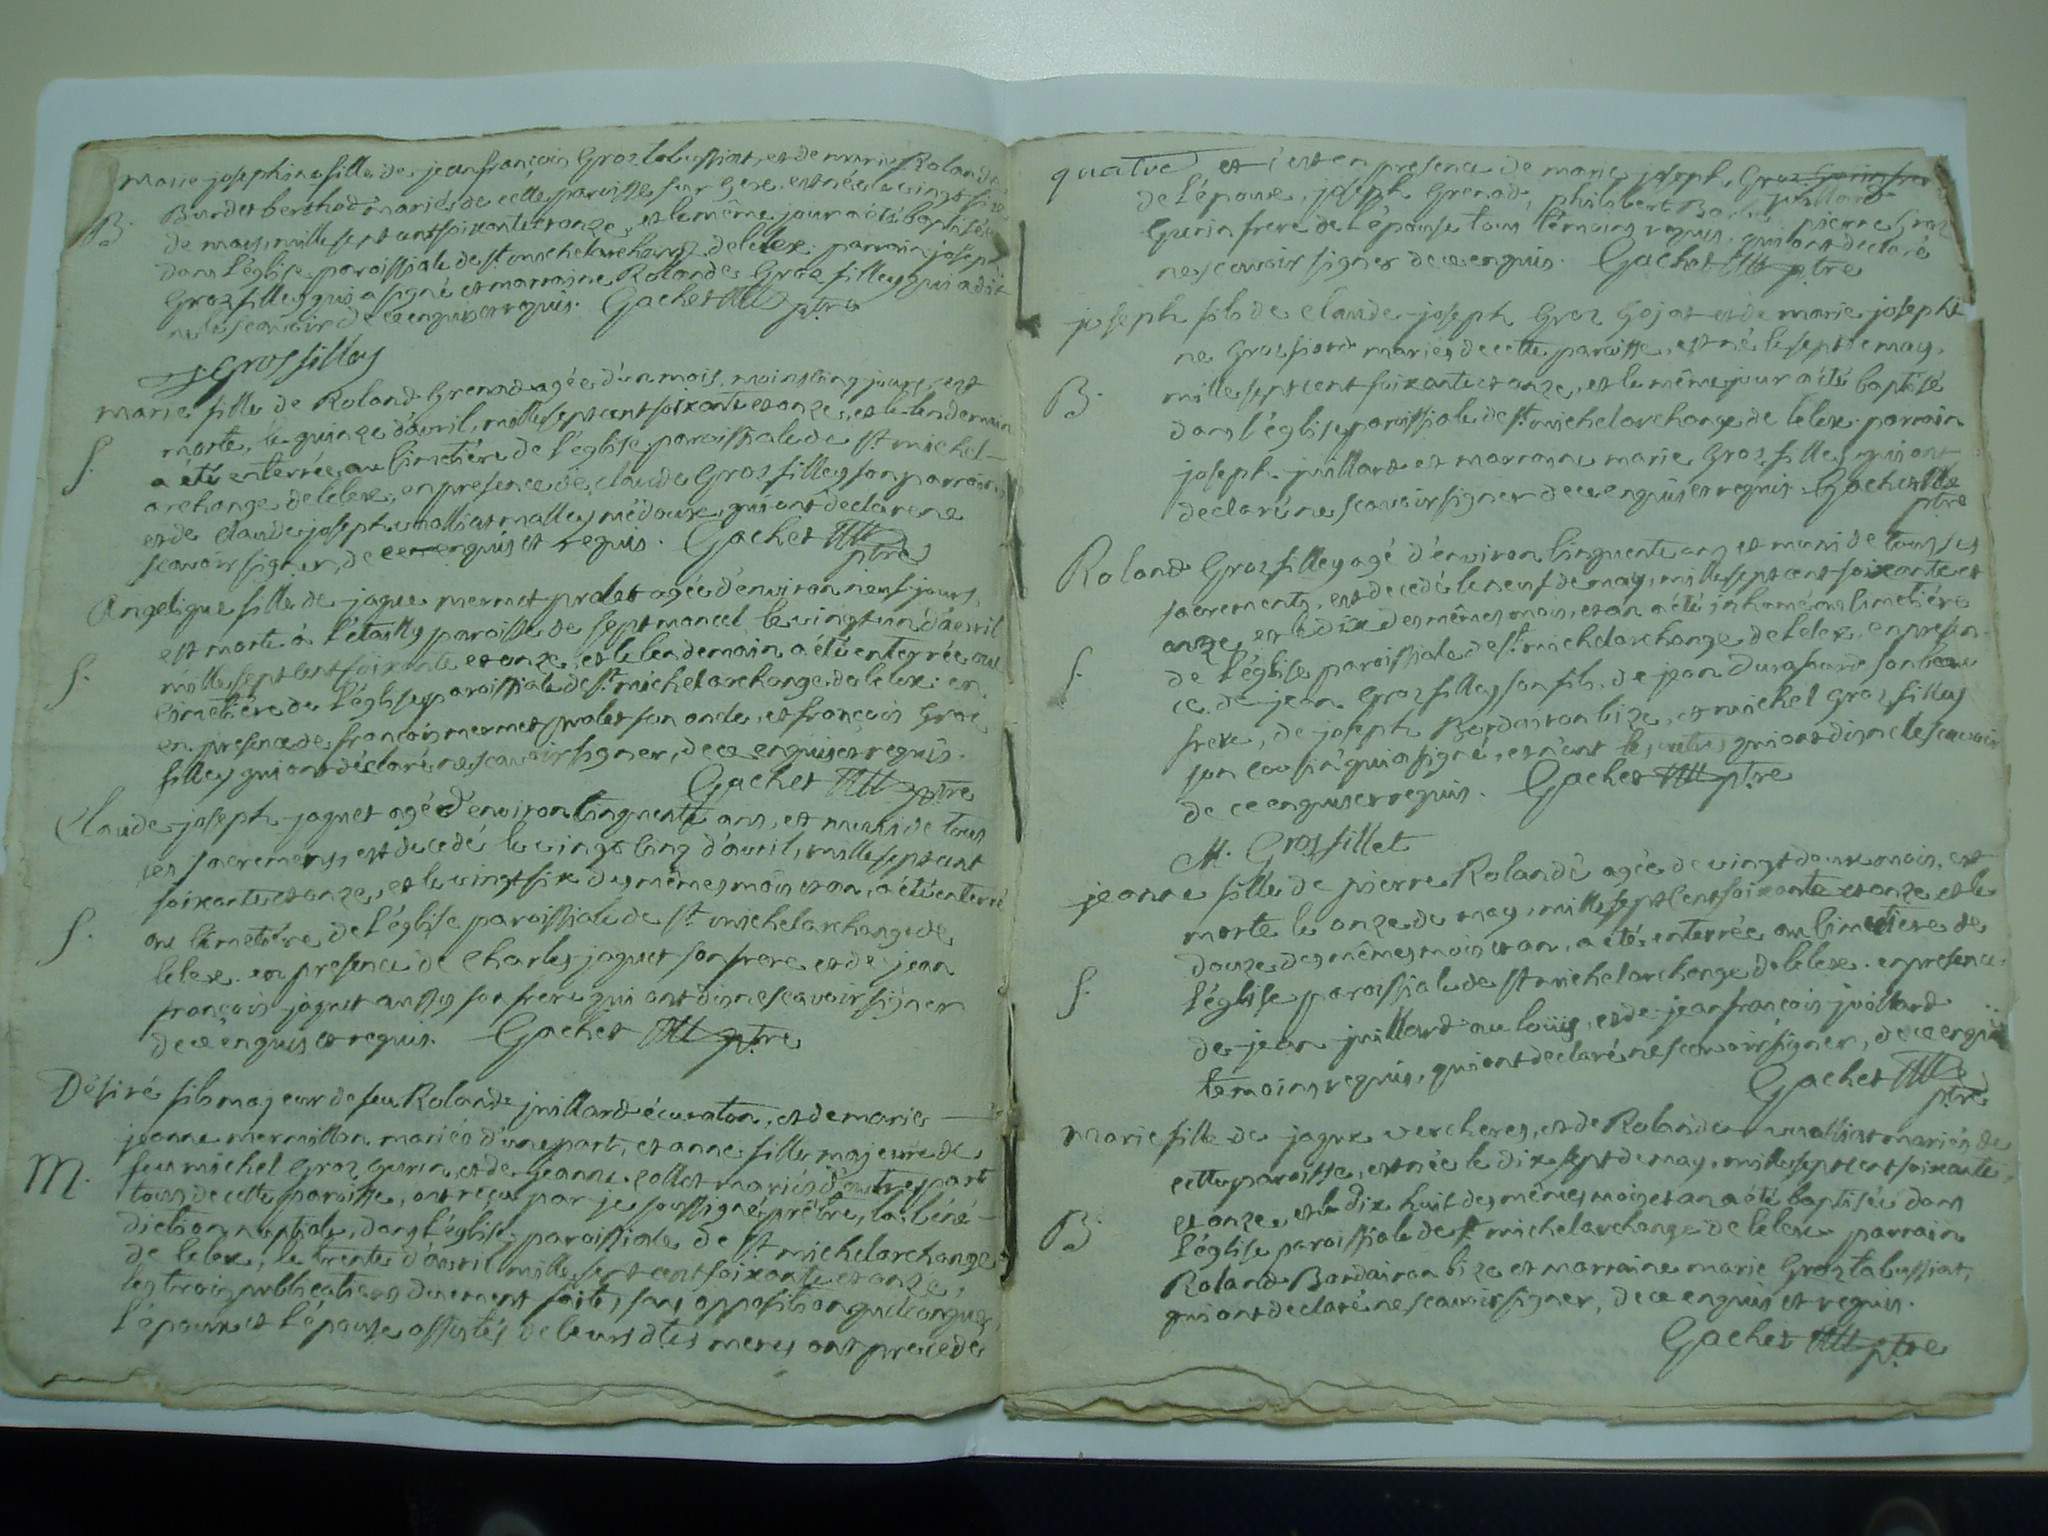 Marie josephine fille de jean françois Groz tabussiat, et de marie Rolande
B. Burdet berthod mariés de cette paroisse sur Gex est née le vingt six
de mars, mille sept cent soixante et onze, et le même jour a été baptisée
dans l'église paroissiale de st michel archange de lelex. parrain joseph
Groz filley qui a signé et marraine Rolande Groz filley qui a dit
ne le scavoir de ce enquis et requis. Gachet ptre
J. Grosfilley
Marie fille de Roland Grenard agée d'un mois moins cinq jours, est
morte, le quinze d'avril, mille sept cent soixante et onze, et le lendemain
S. a été enterrée au cimetière de l'église paroissiale de st michel
archange de lelex, en presence de claude Groz filley son parrain,
et de claude joseph malley médoux, qui ont declaré ne
scavoir signer, de ce enquis et requis. Gachet ptre
Angelique fille de jaque mermet prolet agée d'environ neuf jours,
est morte à paroisse de septmoncel le vingt un d'avril
S. mille sept cent soixante et onze, et le lendemain a été enterrée au
cimetière de l'église paroissiale de st michel archange de lelex. en
en presence de françois mermet prolet son oncle, et françois Groz
filley qui ont déclaré ne scavoir signer, de ce enquis et requis.
Gachet ptre
Claude joseph jaquet agé d'environ cinquante ans, et muni de tous
ses sacremens, est decedé le vingt cinq d'avril, mille sept cent
soixante et onze, et le vingt six des mêmes mois et an, a été enterré
S. au cimetière de l'église paroissiale de st michel archange de
lelex. en presence de Charles jaquet son frere et de jean
françois jaquet aussy son frere qui ont dit ne scavoir signer
de ce enquis et requis. Gachet ptre
Désiré fils majeur de feu Roland juillard écuraton, et de marie
jeanne mermillon mariés d'une part, et anne fille majeure de
M. feu michel Groz Gurin, et de jeanne collet mariés d'autre part
tous de cette paroisse, ont reçu par je soussigné prêtre, la béné-
diction nuptiale, dans l'église paroissiale de st michel archange
de lelex, le trente d'avril mille sept cent soixante et onze,
les trois publications duement faites, sans opposition quelconque,
l'époux et l'épouse assistés de leurs dtes meres ont precedé
quatre et c'est en presence de marie joseph Groz Gurin frere juillard
de l'époux, joseph Grenard, philibert pierre Groz
Gurin frere de l'épouse tous témoins requis, qui ont declaré
ne scavoir signer de ce enquis. Gachet ptre
joseph fils de claude joseph Groz Gojat et de marie josephi
ne Grosfiord mariés de cette paroisse, est né le sept de may,
B. mille sept cent soixante et onze, et le même jour a été baptisé
dans l'église paroissiale de st michel archange de lelex. parrain
joseph juillard et marraine marie Groz filley qui ont
declaré ne scavoir signer de ce enquis et requis. Gachet ptre
Roland Groz filley agé d'environ cinquante ans et muni de tous ses
sacrements, est decedé le neuf de may, mille sept cent soixante et
onze, et le dix des mêmes mois et an a été inhumé au cimetière
S. de l'église paroissiale de st michel archange de lelex, en presen-
ce de jean Groz filley son fils, de jean Durafourd son beau
frere, de joseph Bordairon bize, et michel Groz filley
son cousin qui a signé, et non les autres qui ont dit ne le scavoir
de ce enquis et requis. Gachet ptre
M. Grosfillet
jeanne fille de pierre Rolandé agée de vingt deux mois, est
morte le onze de may, mille sept cent soixante et onze, et le
douze des mêmes mois et an, a été enterrée au cimetiere de
S. l'église paroissiale de st michel archange de lelex. en presence
de jean juillard au loüis, et de jean françois juillard
temoins requis, qui ont declaré ne scavoir signer, de ce enquis
Gachet ptre
Marie fille de jaque vercheres, et de Rolande mariés de
cette paroisse, est née le dix sept de may, mille sept cent soixante,
et onze et le dix huit des mêmes mois et an a été baptisée dans
B. l'église paroissiale de st michel archange de lelex parrain
Roland Bordairon bize et marraine marie Groz tabussiat,
qui ont declaré ne scavoir signer, de ce enquis et requis.
Gachet ptre